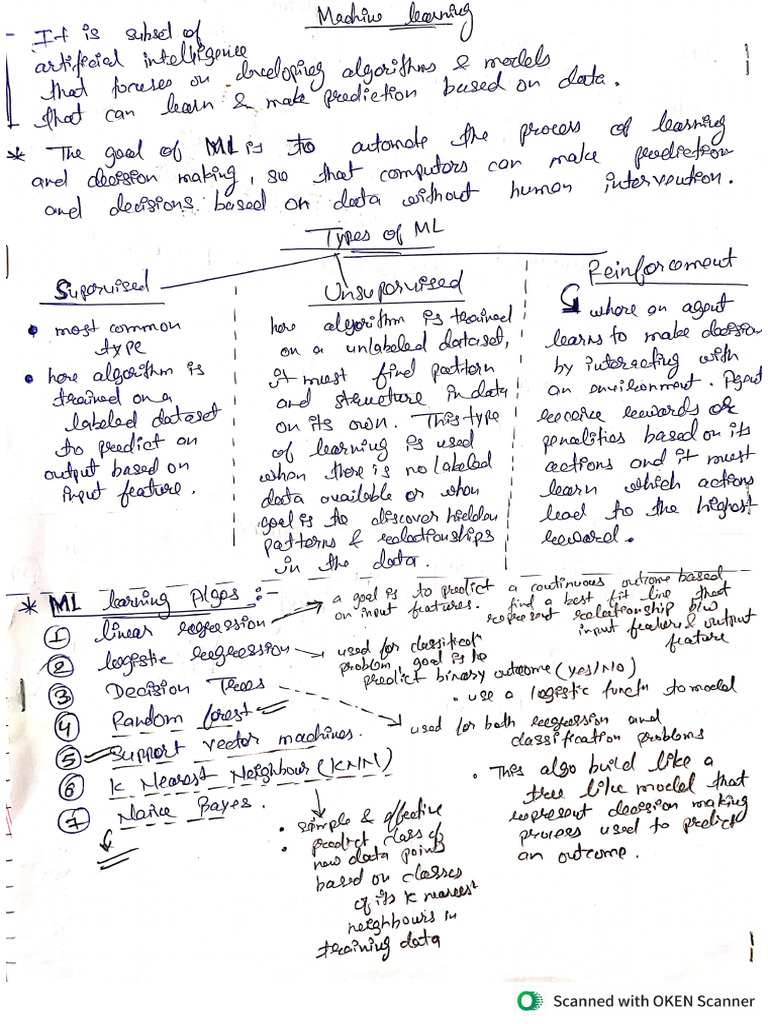 Machine learning
- It is subset of
artificial intelligence
that focuses on developing algorithms & models
that can learn & make prediction based on data.
* The goal of ML is to automate the process of learning
and decision making, so that computers can make prediction
and decisions based on data without human intervention.
Types of ML
Supervised
• most common
type
• here algorithm is
trained on a
labeled dataset
to predict an
output based on
input feature.
Unsupervised
here algorithm is trained
on a unlabeled dataset,
it must find pattern
and structure in data
on its own. This type
of learning is used
when there is no labeled
data available or when
goal is to discover hidden
patterns & realationships
in the data.
Reinforcement
where an agent
learns to make decision
by interacting with
an environment. Agent
receive rewards or
penalities based on its
actions and it must
learn which actions
lead to the highest
reward.
* ML learning Algos :-
① linear regression
a goal is to predict a continuous outcome based
on input features. find a best fit line that
represent realationship b/w
input feature & output
feature
② logistic regression
used for classificat
problem, goal is to
predict binary outcome (yes/NO)
• use a logistic functn to model
③ Decision Trees
used for both regression and
classification problems
• This algo build like a
tree like model that
represent decision making
process used to predict
an outcome.
④ Random forest
⑤ Support vector machines.
⑥ K Nearest Neighbour (KNN)
• simple & effective
• predict class of
new data points
based on classes
of its k nearest
neighbours in
training data
⑦ Naive Bayes.
Scanned with OKEN Scanner